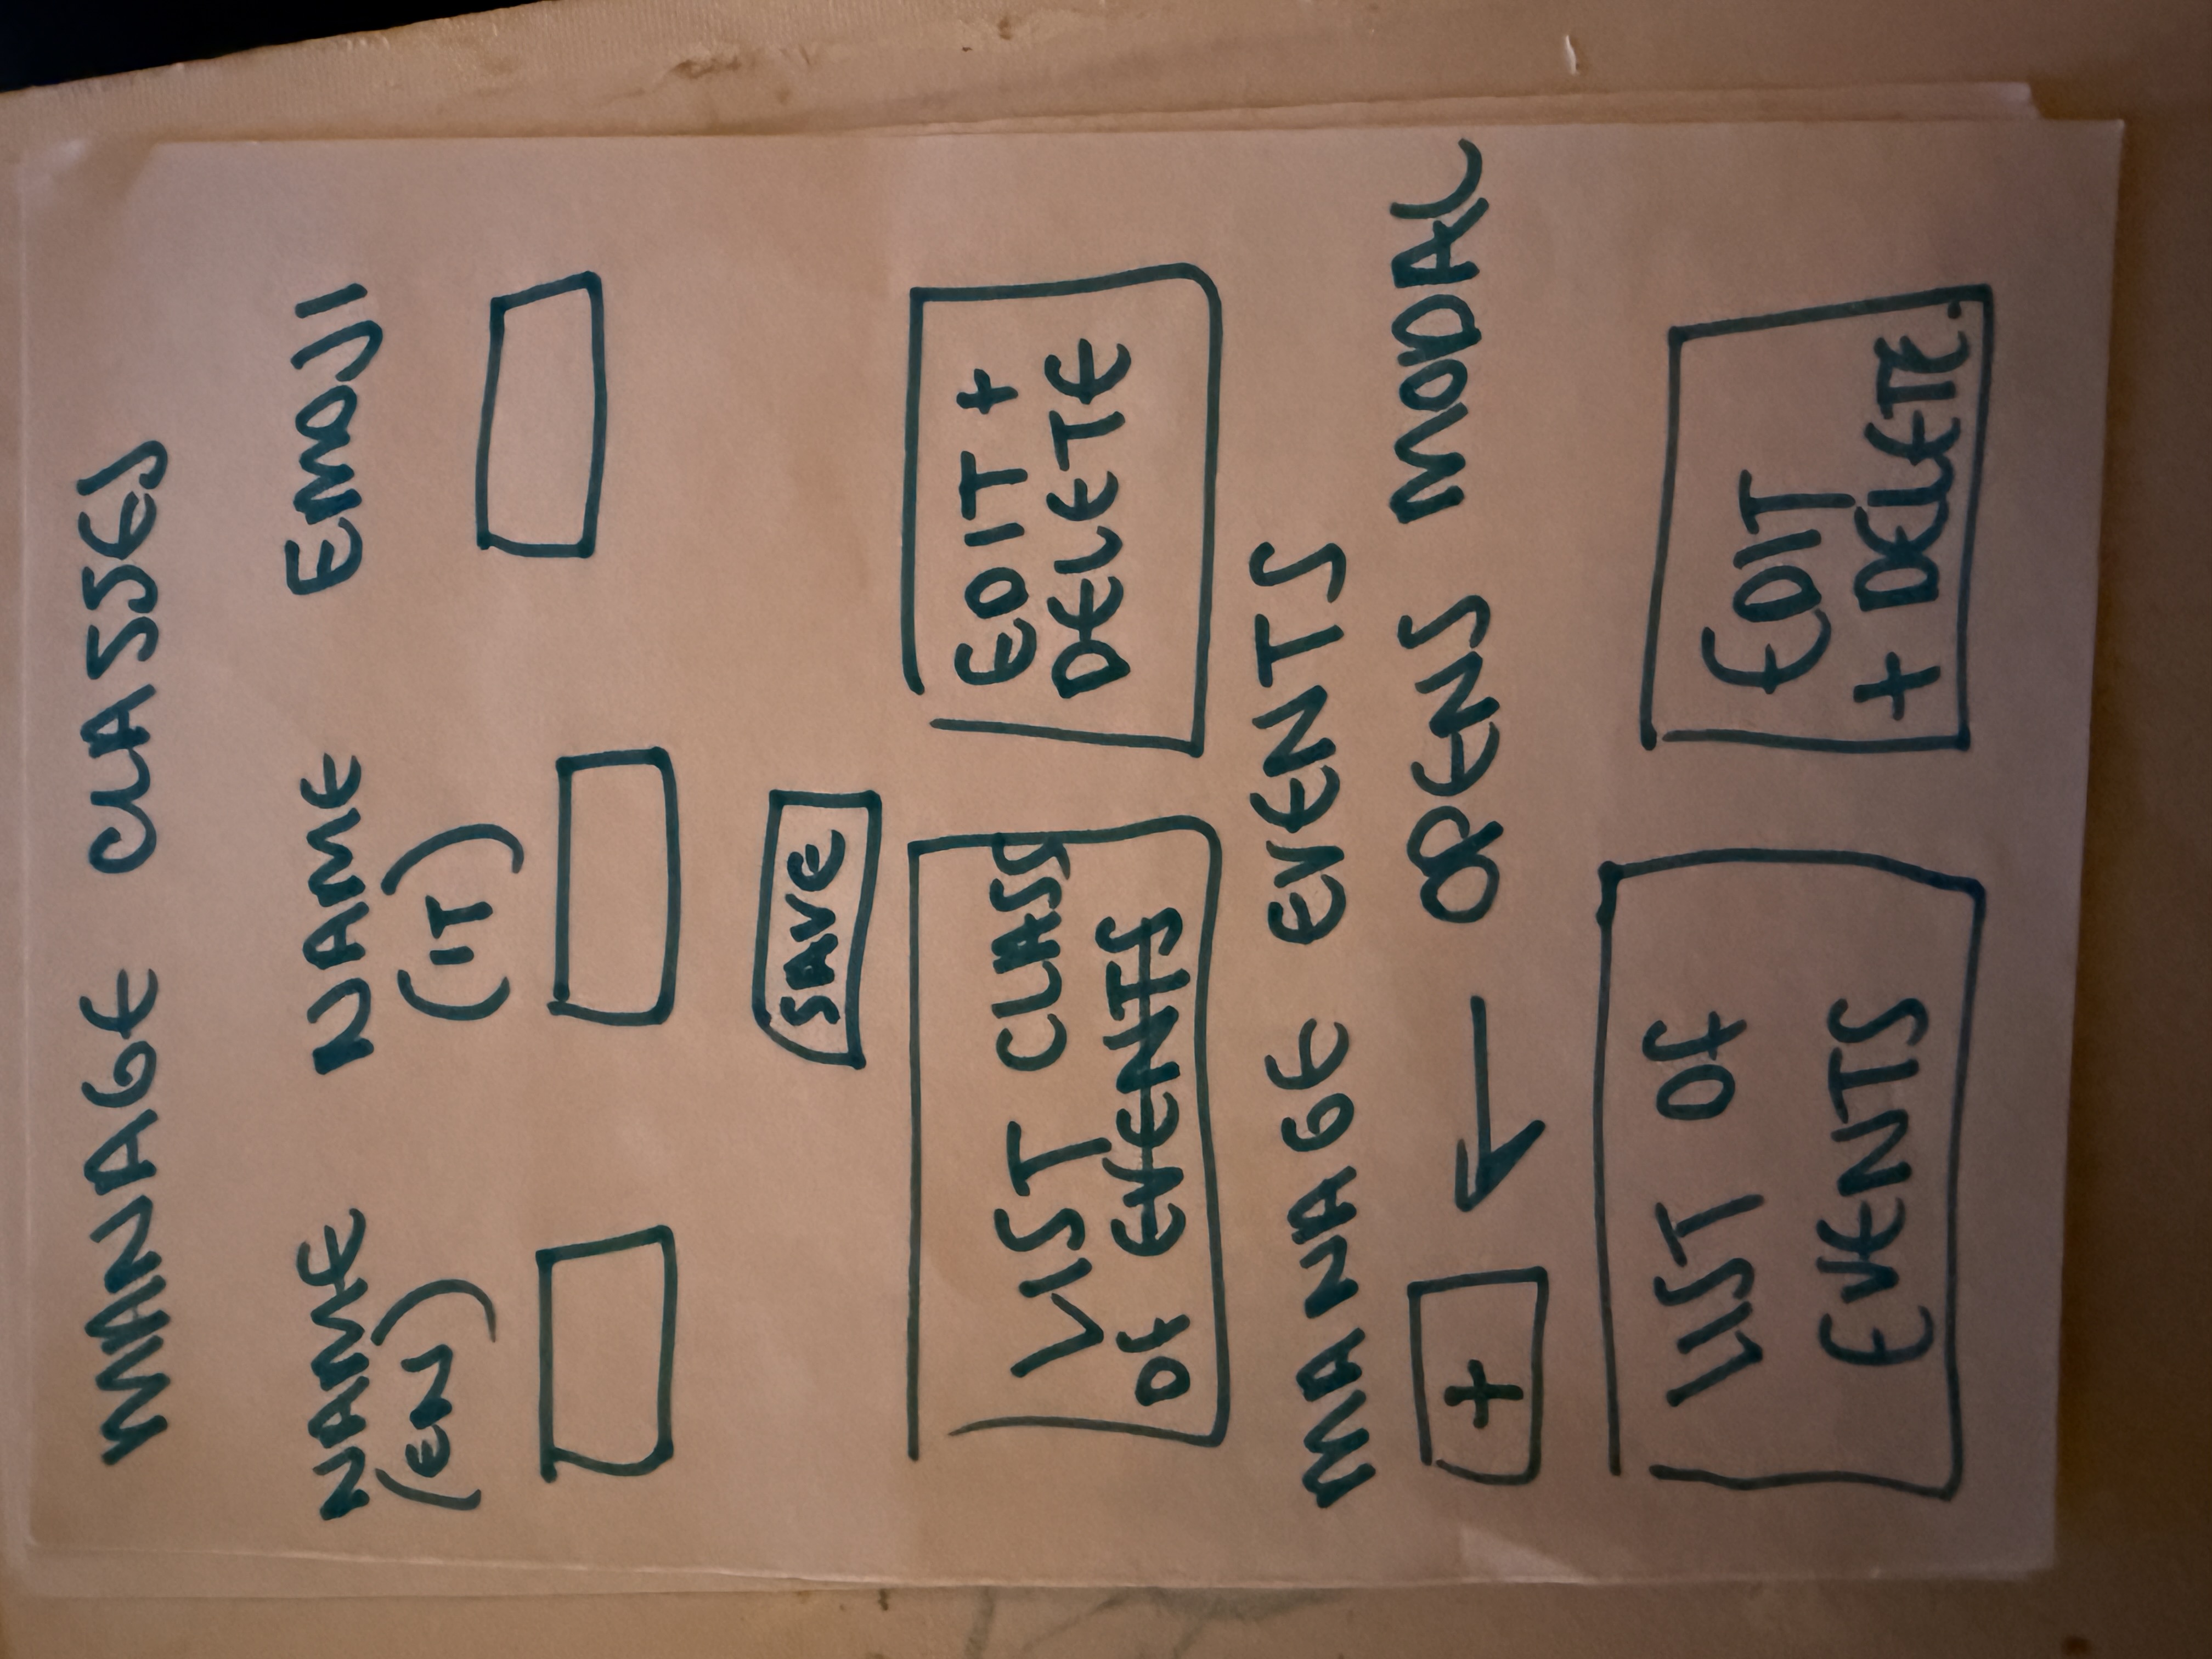 MANAGE CLASSES
NAME NAME EMOJI
(EN) (IT)
SAVE
LIST CLASS
OF EVENTS
EDIT +
DELETE
MANAGE EVENTS
+ ← OPENS MODAL
LIST OF
EVENTS
EDIT
+ DELETE.